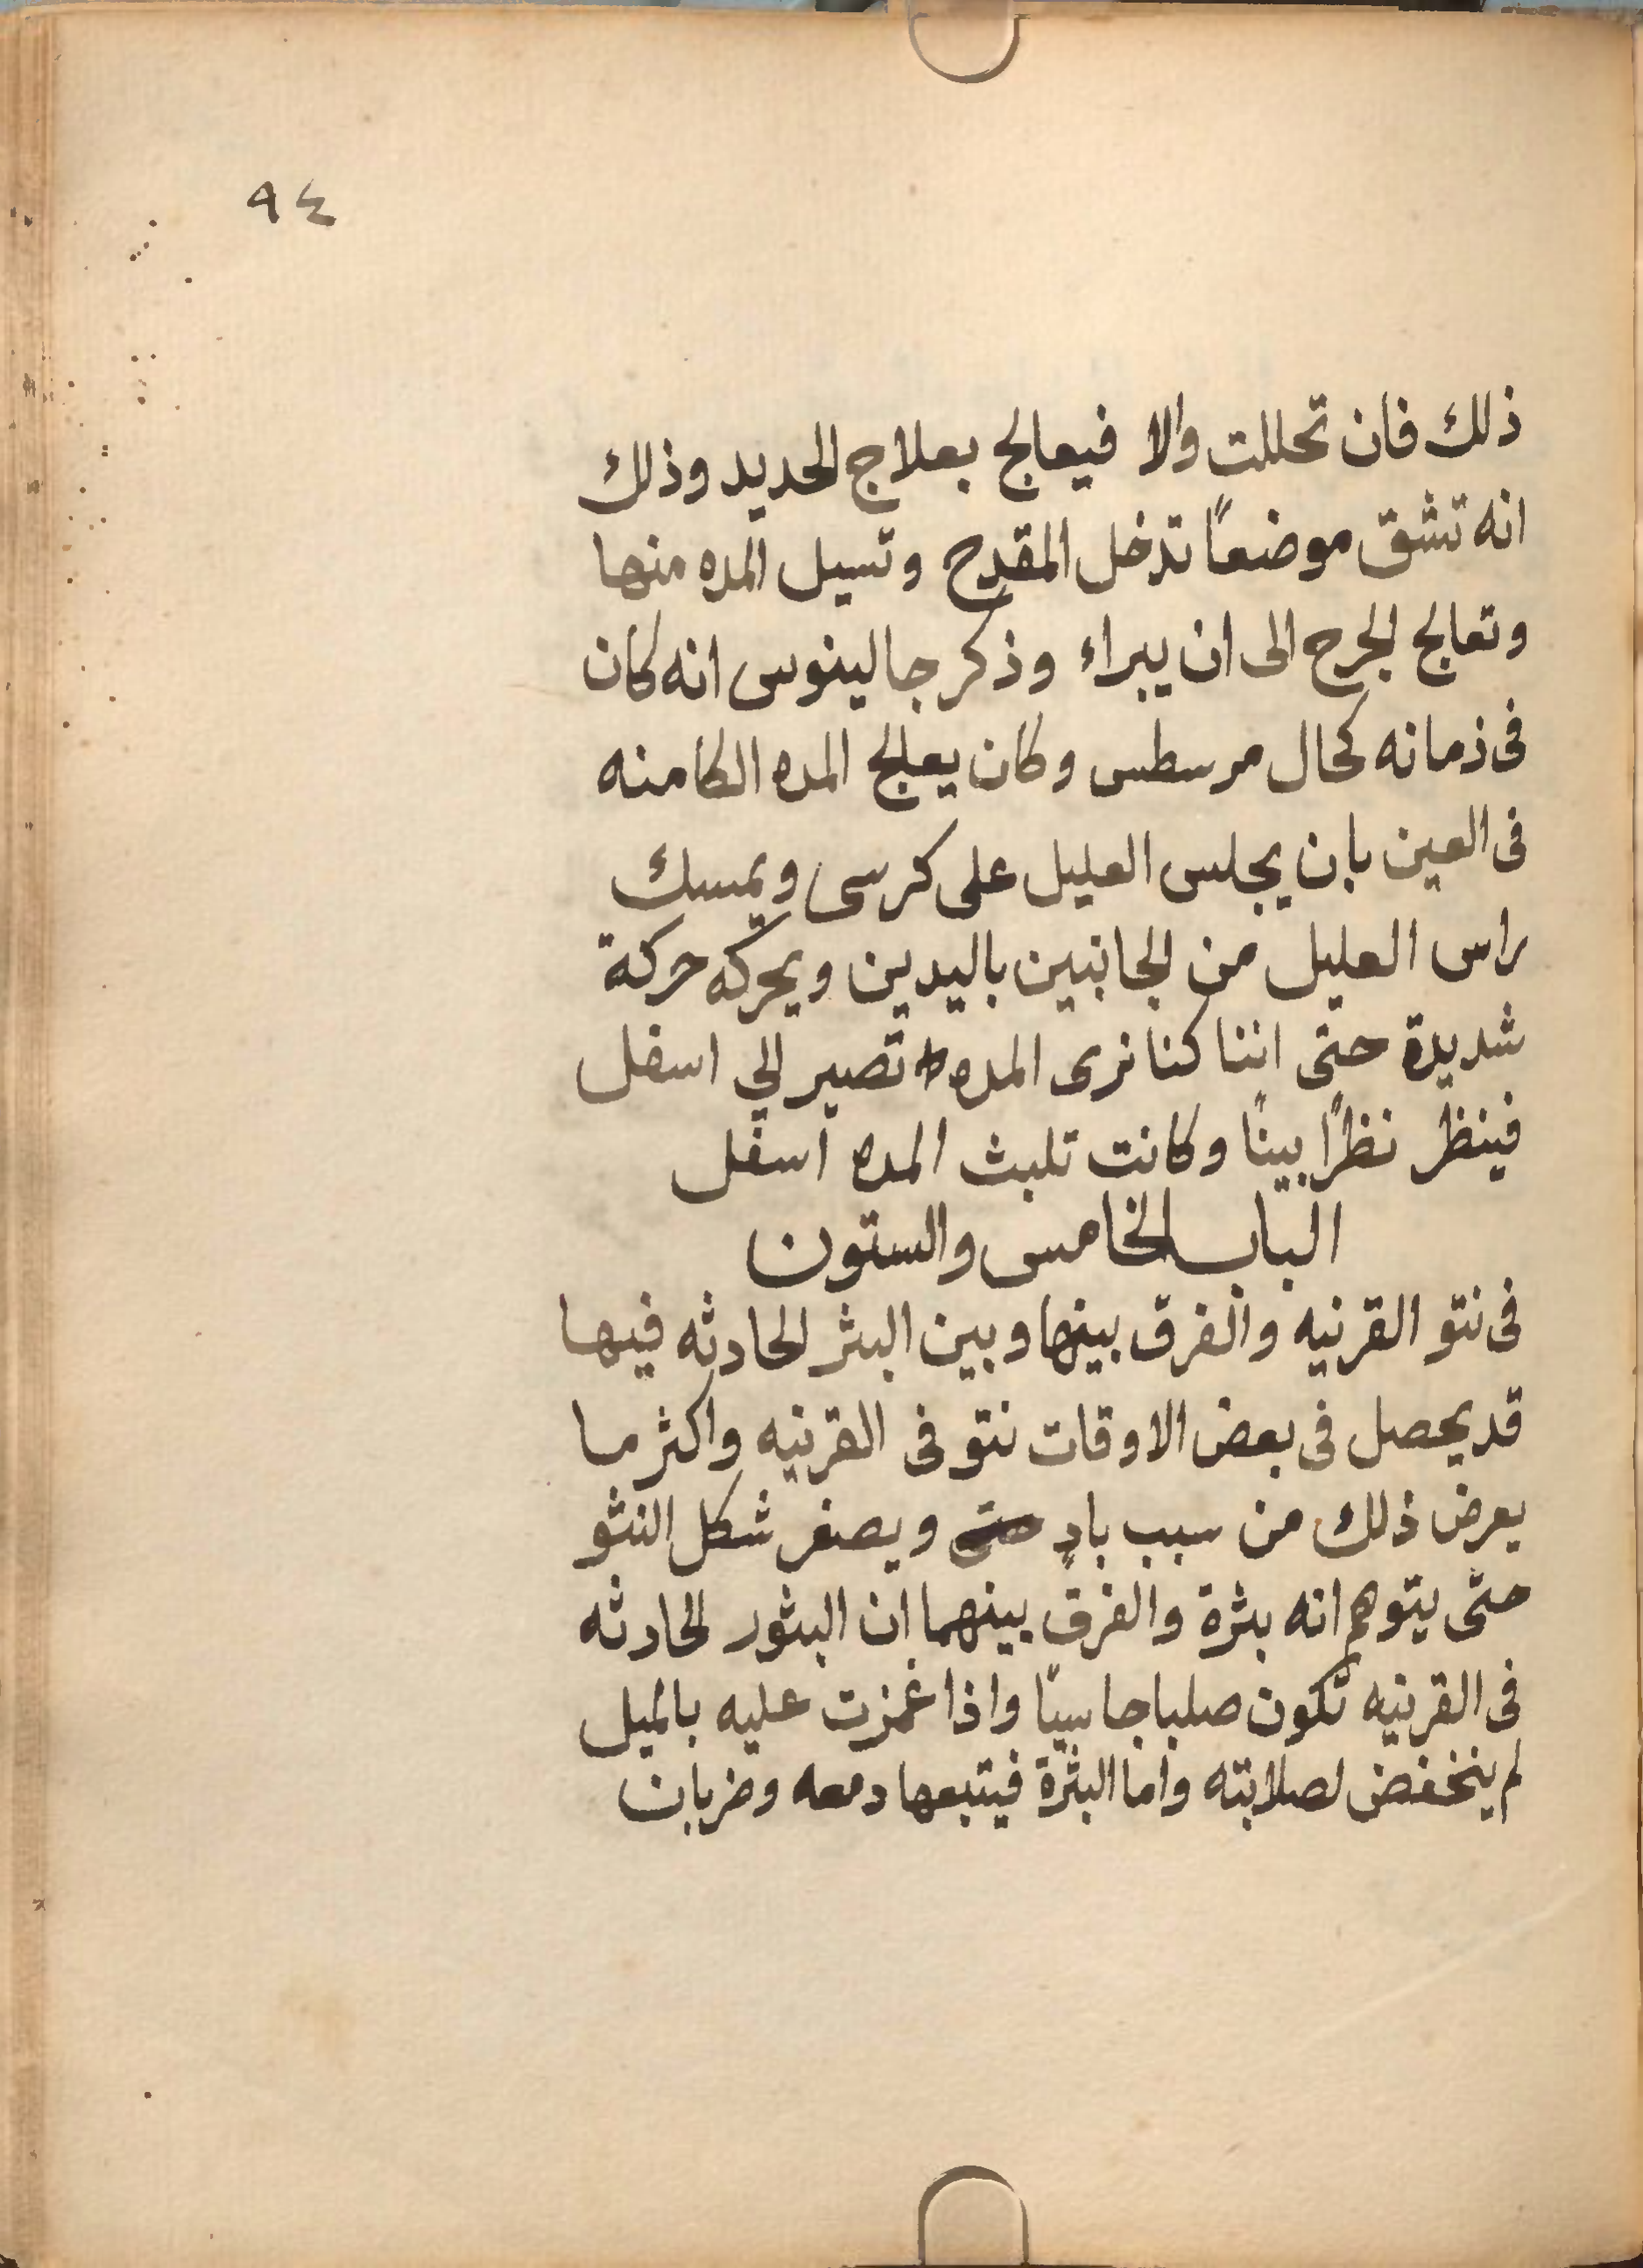 ٩٤
ذلك فان تحللت والا فيعالج بعلاج الحديد وذلك
انه تشق موضعاً تدخل المقدح وتسيل المده منها
وتعالج الجرح الى ان يبراء وذكر جالينوس انه كان
فى ذمانه كحال مرسطس وكان يعالج المده الكامنه
فى العين بان يجلس العليل على كرسى ويمسك
راس العليل من الجانبين باليدين ويحركه حركة
شديدة حتى اننا كنا نرى المده تصير الي اسفل
فينظر نظراً بيناً وكانت تلبث المده اسفل
الباب الخامس والستون
فى نتو القرنيه والفرق بينها وبين البثر الحادثه فيها
قد يحصل فى بعض الاوقات نتو فى القرنيه واكثر ما
يعرض ذلك من سبب بادٍ حتى ويصغر شكل النثو
حتى يتوهم انه بثرة والفرق بينهما ان البثور الحادثه
فى القرنيه تكون صلبا جاسيًا واذا غمزت عليه بالميل
لم ينخفض لصلابته واما البثرة فيتبعها دمعه وضربان